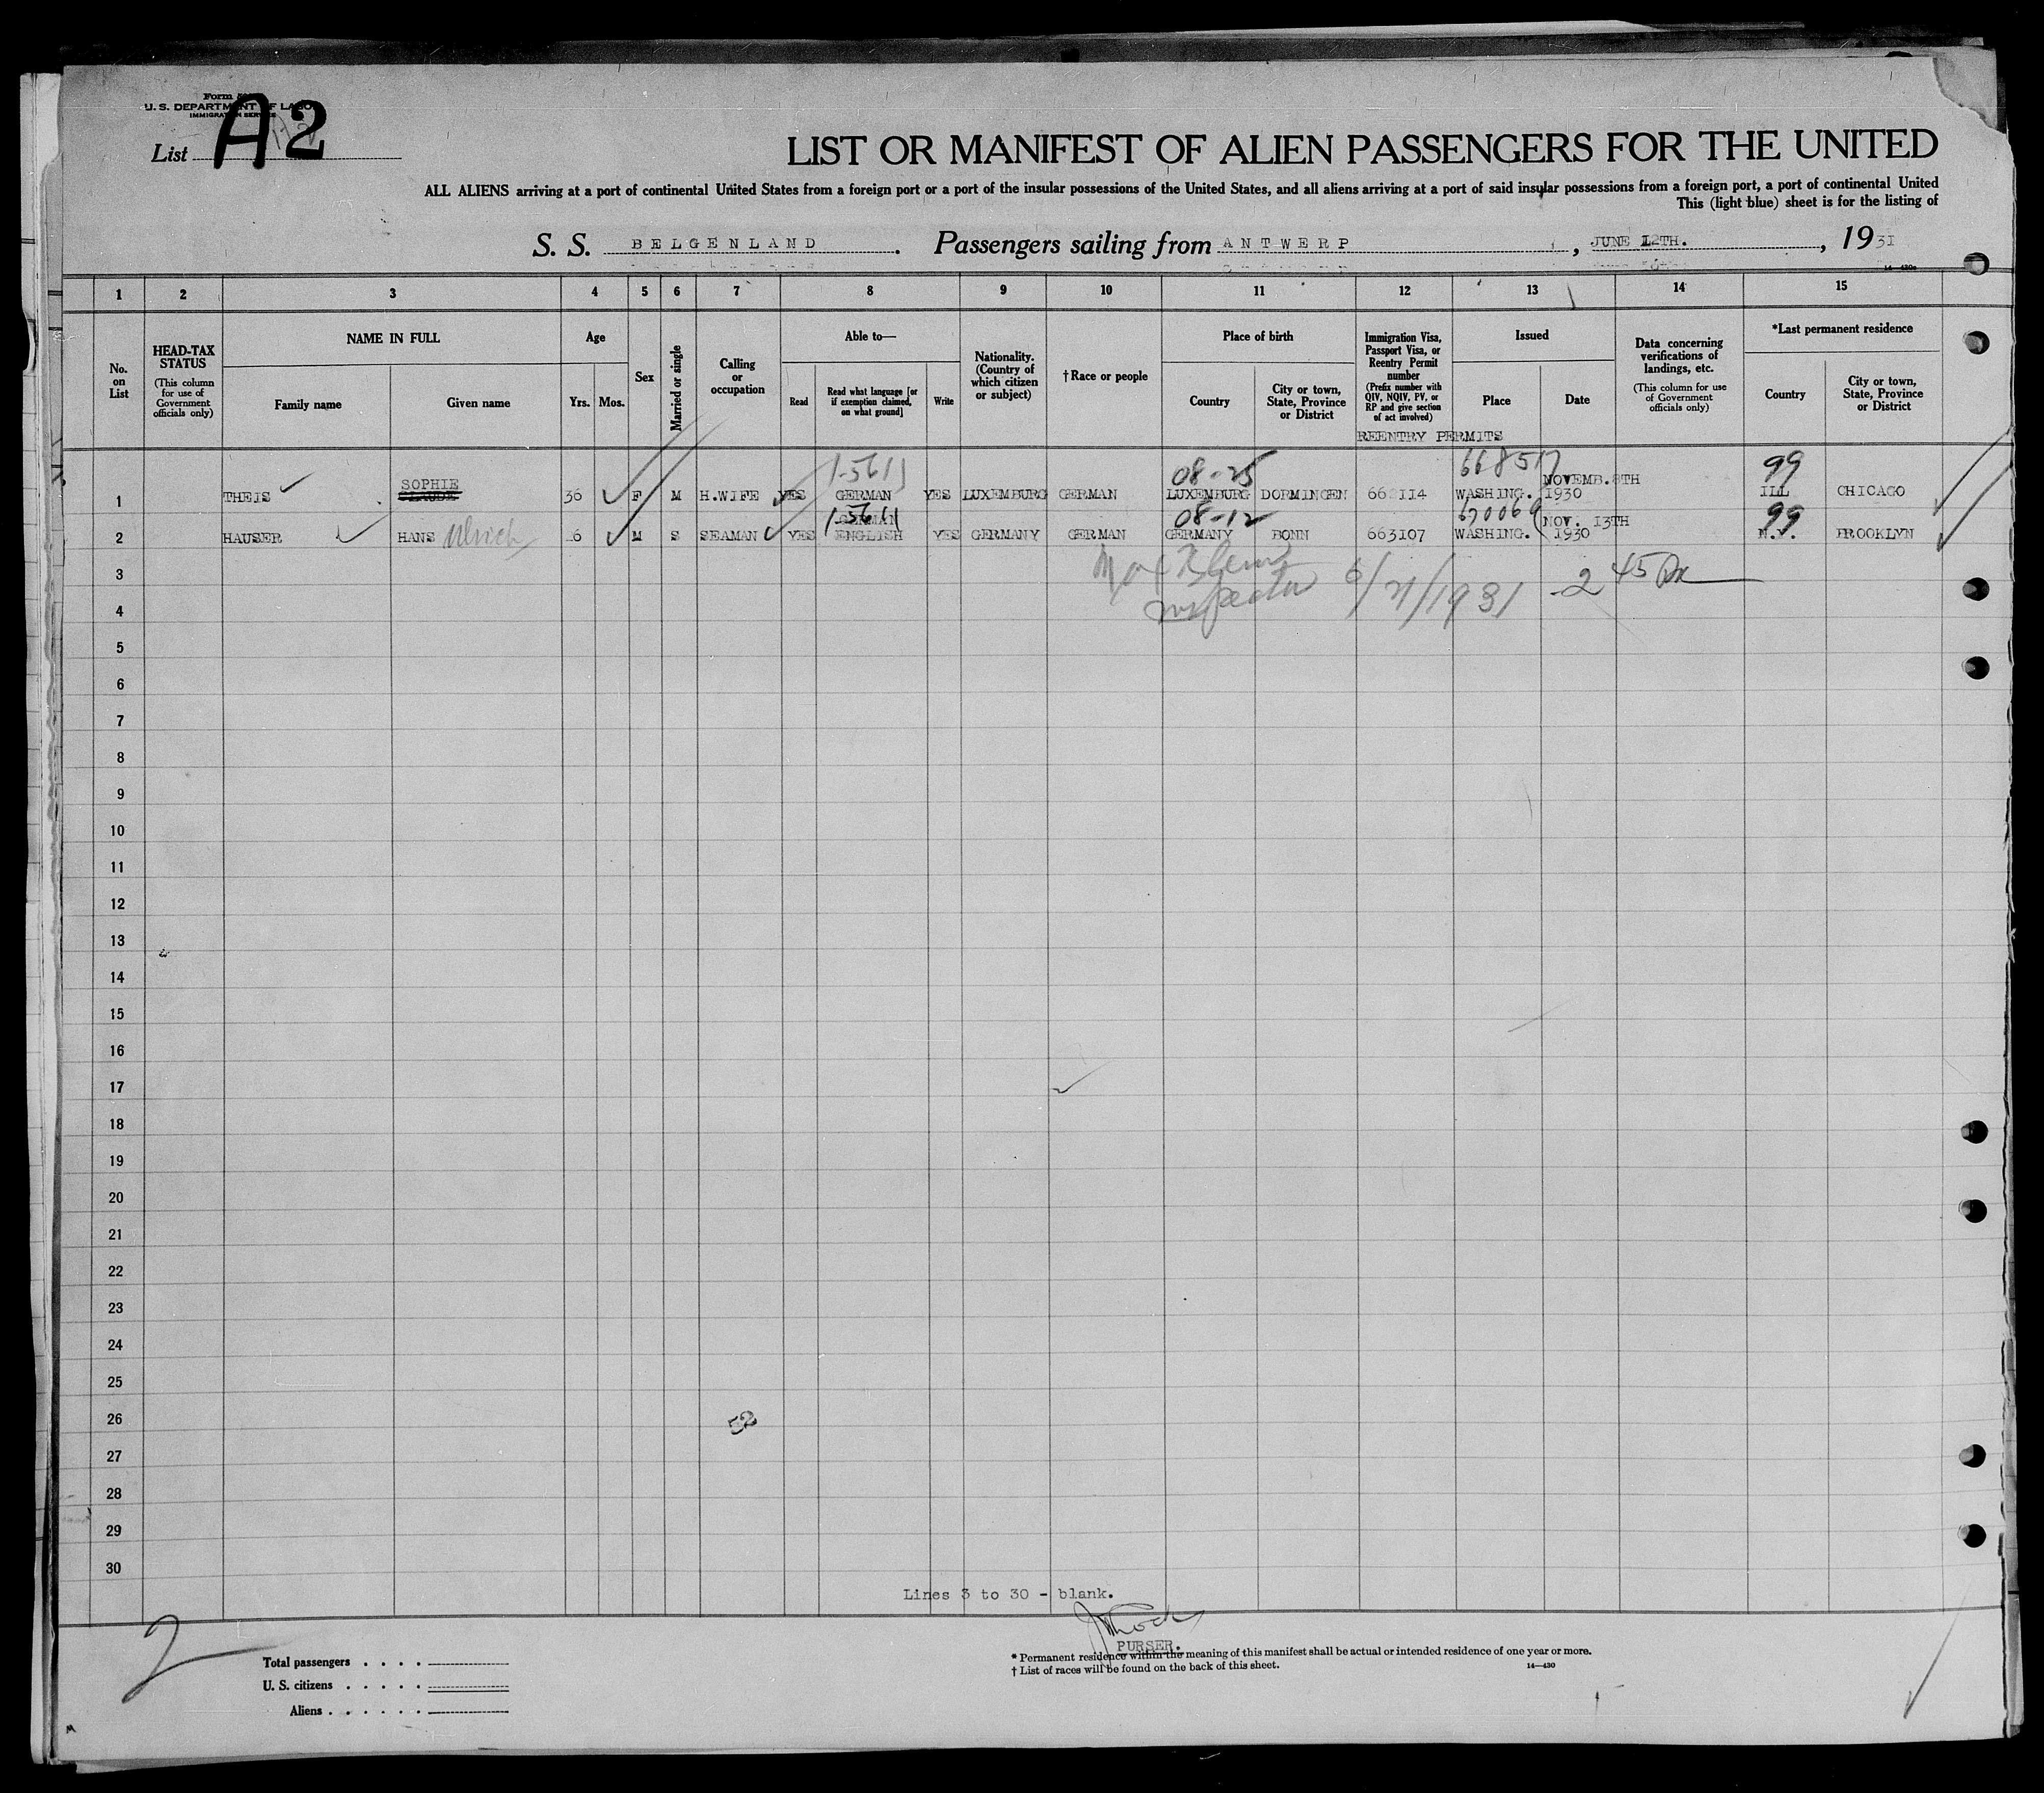 U. S. DEPARTMENT OF LABOR
IMMIGRATION SERVICE
List A2
LIST OR MANIFEST OF ALIEN PASSENGERS FOR THE UNITED
ALL ALIENS arriving at a port of continental United States from a foreign port or a port of the insular possessions of the United States, and all aliens arriving at a port of said insular possessions from a foreign port, a port of continental United
This (light blue) sheet is for the listing of
S. S. BELGENLAND. Passengers sailing from ANTWERP, JUNE 12TH., 1931
1 2 3 4 5 6 7 8 9 10 11 12 13 14 15
No. on List
HEAD-TAX STATUS (This column for use of Government officials only)
NAME IN FULL
Family name
Given name
Age
Yrs. Mos.
Sex
Married or single
Calling or occupation
Able to—
Read
Read what language [or if exemption claimed, on what ground]
Write
Nationality. (Country of which citizen or subject)
†Race or people
Place of birth
Country
City or town, State, Province or District
Immigration Visa, Passport Visa, or Reentry Permit number (Prefix number with QIV, NQIV, PV, or RP and give section of act involved)
Issued
Place
Date
Data concerning verifications of landings, etc. (This column for use of Government officials only)
*Last permanent residence
Country
City or town, State, Province or District
REENTRY PERMITS
08-25 668517 NOVEMB.8TH 99
SOPHIE
1 THEIS CLAUDE 36 F M H.WIFE YES GERMAN YES LUXEMBURG GERMAN LUXEMBURG DORMINGEN WASHING. 1930 ILL CHICAGO
GERMAN 08-12 670069 NOV. 13TH 99
2 HAUSER HANS Ulrich M S SEAMAN YES ENGLISH YES GERMANY GERMAN GERMANY BONN 663107 WASHING. 1930 N.Y. BROOKLYN
3
Inspector 6/21/1931 2 45
4
5
6
7
8
9
10
11
12
13
14
15
16
17
18
19
20
21
22
23
24
25
26
52
27
28
29
30
Lines 3 to 30 - blank.
PURSER.
2
Total passengers
U. S. citizens
Aliens
* Permanent residence within the meaning of this manifest shall be actual or intended residence of one year or more.
† List of races will be found on the back of this sheet.
14—430